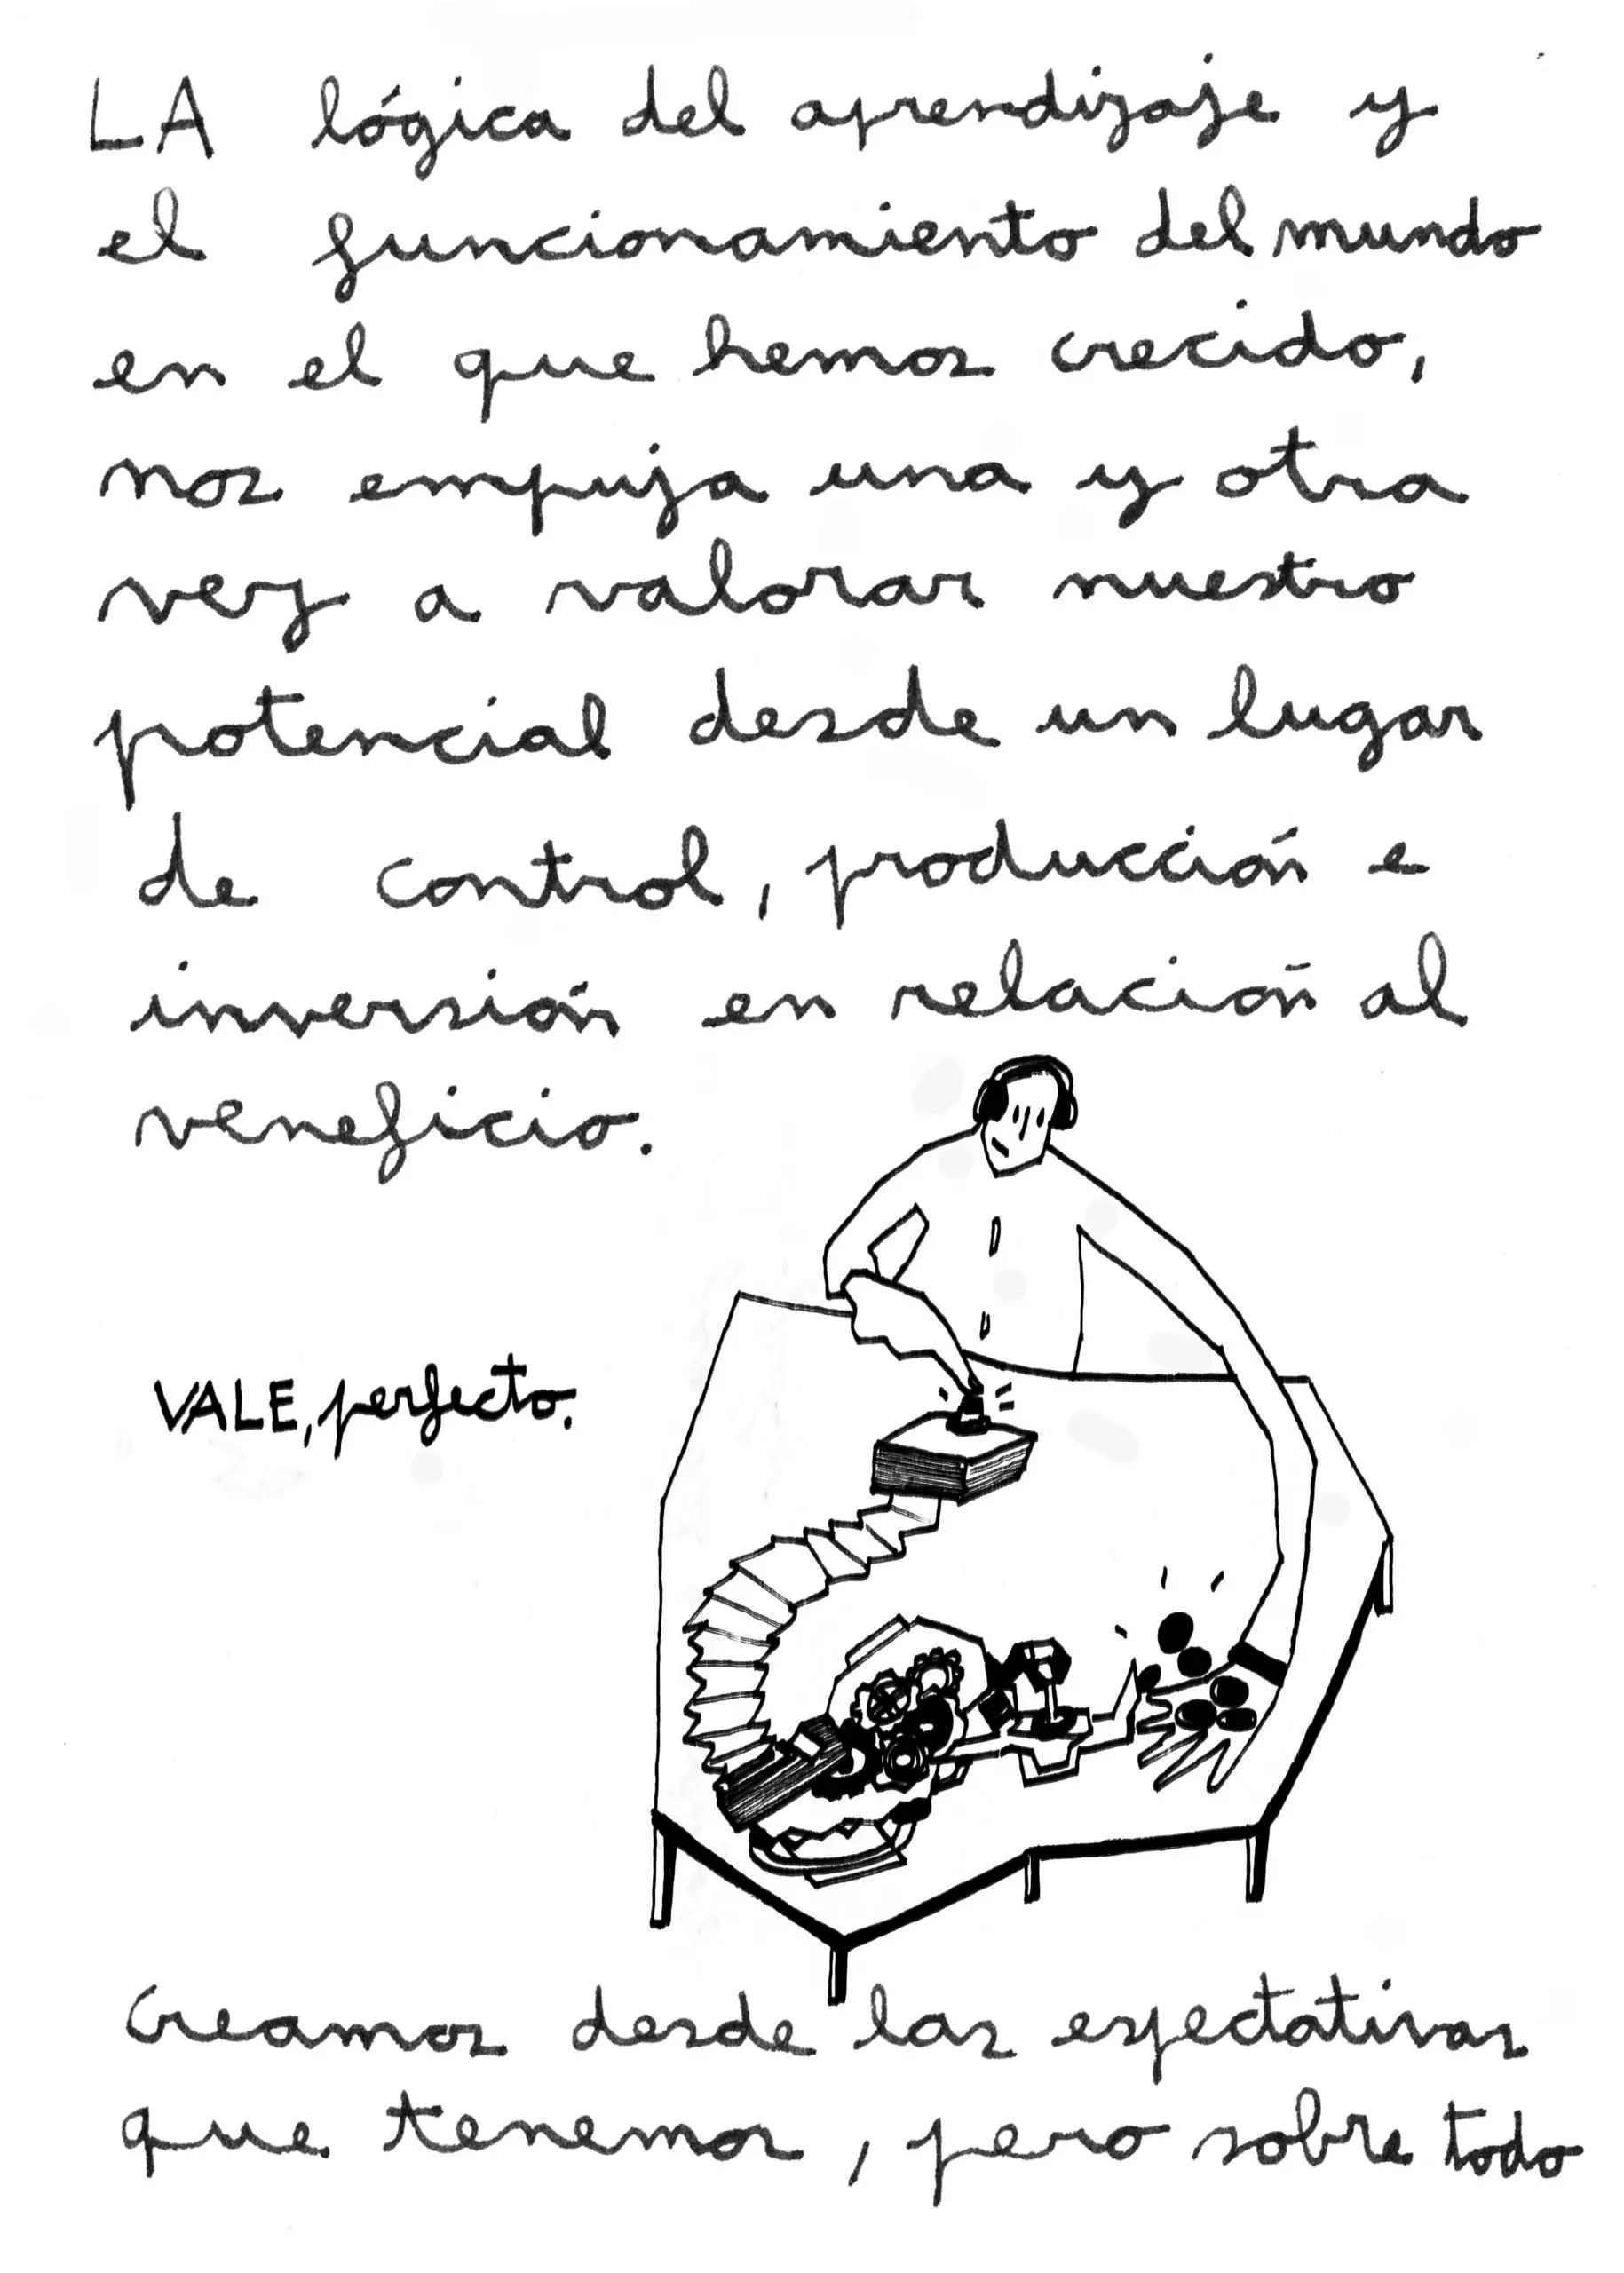 LA lógica del aprendizaje y
el funcionamiento del mundo
en el que hemos crecido,
nos empuja una y otra
vez a valorar nuestro
potencial desde un lugar
de control, producción e
inversión en relación al
veneficio.
VALE, perfecto.
Creamos desde las espectativas
que tenemos, pero sobre todo